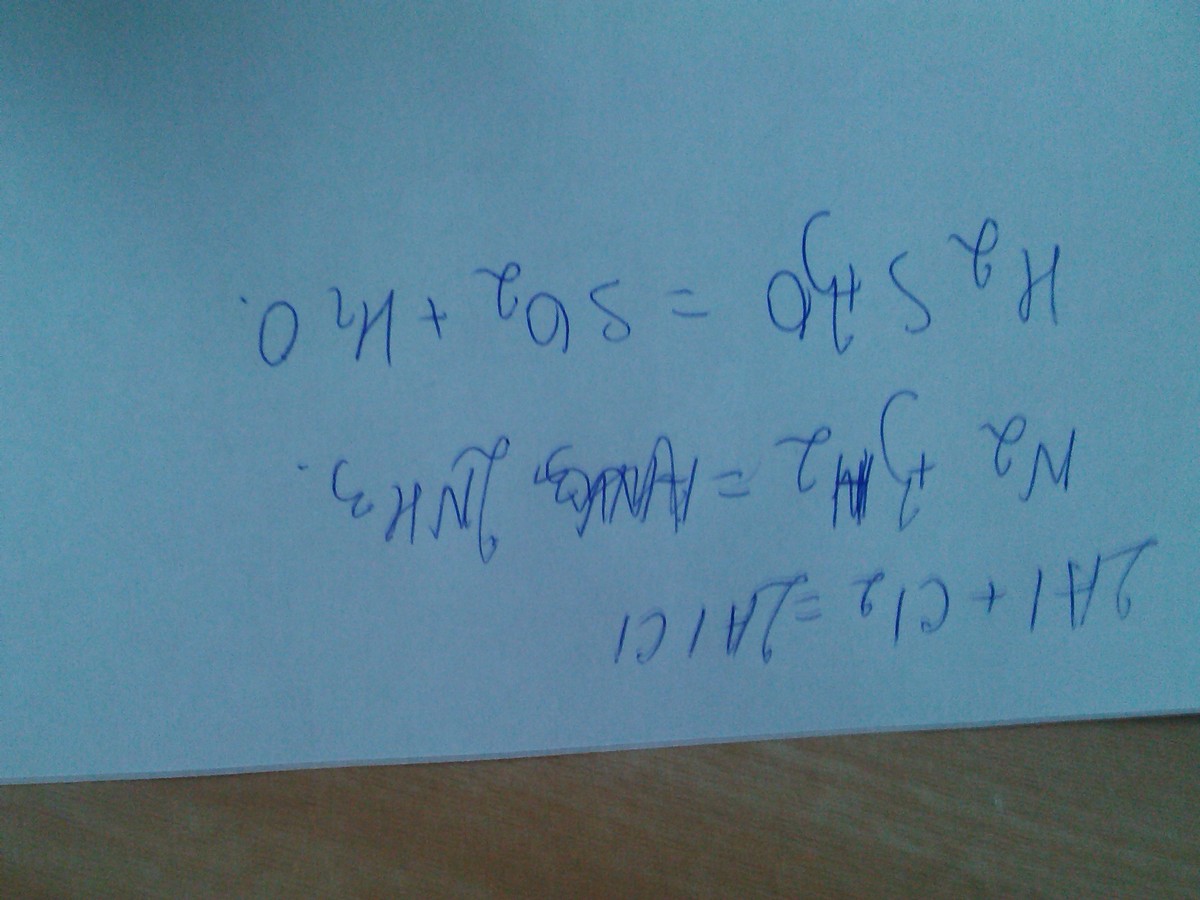 2Al + Cl2 = 2AlCl
N2 + 3H2 = 2NH3.
H2S + 3O = SO2 + H2O.